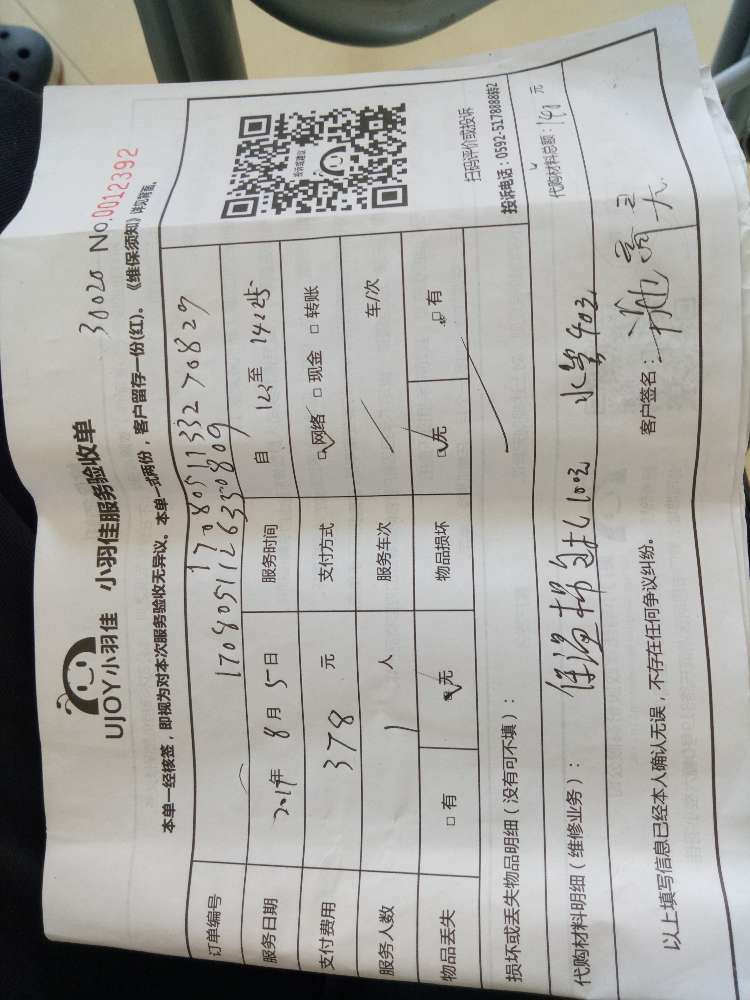 UJOY小羽佳 小羽佳服务验收单
30020 No.0012392
本单一经核签，即视为对本次服务验收无异议。本单一式两份，客户留存一份(红)。《维保须知》详见背面。
订单编号 17080511332 70829
17080511263350809
服务日期 2017年 8月 5日 服务时间 自 12: 至 14:45
支付费用 378 元 支付方式 □网络 □现金 □转账
服务人数 1 人 服务车次 车/次
物品丢失 □有 □无 物品损坏 □无 □有
投诉或建议
扫码评价或投诉
投诉电话：0592-5178888转2
损坏或丢失物品明细（没有可不填）：
代购材料明细（维修业务）： 保温棉自扎100元 水管40元 代购材料总额：140 元
以上填写信息已经本人确认无误，不存在任何争议纠纷。 客户签名：